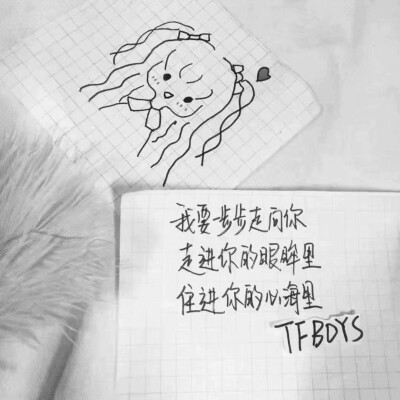 我要步步走向你
走进你的眼眸里
住进你的心海里
TFBOYS